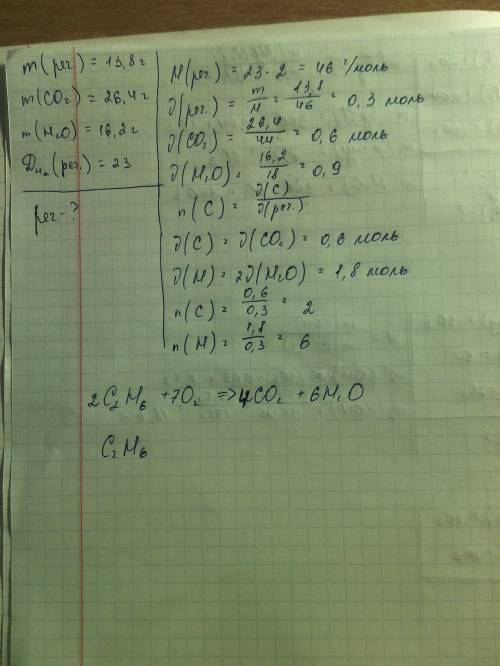 m(реч.) = 13,8 г
m(CO₂) = 26,4 г
m(H₂O) = 16,2 г
D_H₂(реч.) = 23
реч - ?
M(реч.) = 23 · 2 = 46 г/моль
ν(реч.) = m/M = 13,8/46 = 0,3 моль
ν(CO₂) = 26,4/44 = 0,6 моль
ν(H₂O) = 16,2/18 = 0,9
n(C) = ν(C)/ν(реч.)
ν(C) = ν(CO₂) = 0,6 моль
ν(H) = 2ν(H₂O) = 1,8 моль
n(C) = 0,6/0,3 = 2
n(H) = 1,8/0,3 = 6
2C₂H₆ + 7O₂ => 4CO₂ + 6H₂O
C₂H₆